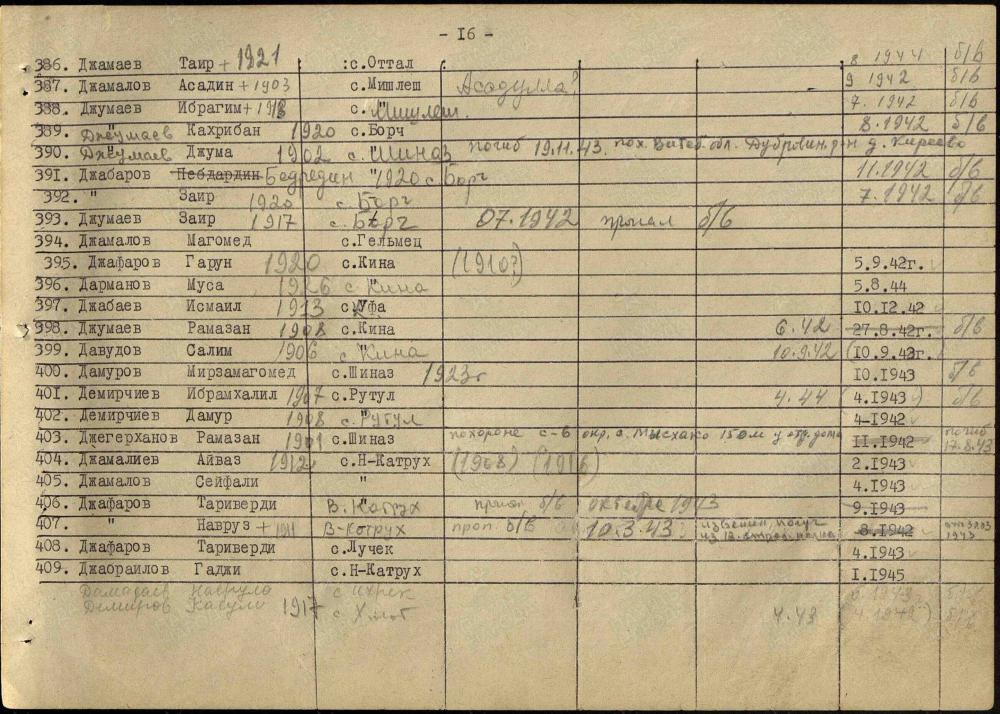 - 16 -
386. Джамаев Таир + 1921 с.Оттал 8 1944 б/в
387. Джамалов Асадин + 1903 с.Мишлеш Асадулла? 9 1942 б/в
388. Джумаев Ибрагим + с. Мишлеш. 7. 1942 б/в
389. Джумаев Кахрибан 1920 с.Борч 8.1942 б/в
390. Джумаев Джума 1902 с. Шиназ погиб 19.11.43. пох. Витеб. обл. Дубровин. р-н д. Киреево
391. Джабаров Пебдардин Бедредин " 1920 с. Борч 11.1942 б/в
392. " Заир 1920 с. Борч 7.1942 б/в
393. Джумаев Заир 1917 с. Борч 07.1942 пропал б/в
394. Джамалов Магомед с.Гельмец
395. Джафаров Гарун 1920 с.Кина (1910?) 5.9.42г.
396. Дарманов Муса 1926 с. Кина 5.8.44
397. Джабаев Исмаил 1913 с.Уфа 10.12.42
398. Джумаев Рамазан 1908 с.Кина 6.42 27.8.42г. б/в
399. Давудов Салим 1906 с. Кина 10.9.42 (10.9.43г.)
400. Дамуров Мирзамагомед с.Шиназ 1923г 10.1943 б/в
401. Демирчиев Ибрамхалил 1907 с.Рутул 4.44 (4.1943) б/в
402. Демирчиев Дамур 1908 с. Рутул 4-1942
403. Джегерханов Рамазан 1901 с.Шиназ похороне с-в окр. с. Мысхако 150м у отд. дома 11.1942 погиб 17.8.43
404. Джамалиев Айваз 1912 с.Н-Катрух (1908) (1916) 2.1943
405. Джамалов Сейфали " 4.1943
406. Джафаров Тариверди В. Катрух проп б/в октября 1943 9.1943
407. " Навруз + 1911 В-Катрух проп. б/в 10.3.43 извещен. получ 8.1942 1943
408. Джафаров Тариверди с.Лучек 4.1943
409. Джабраилов Гаджи с.Н-Катрух 1.1945
Дамадаев с. Ихрек 6.1943 б/в
Демиров 1917 с Хнот 4.43 (4.1942) б/в